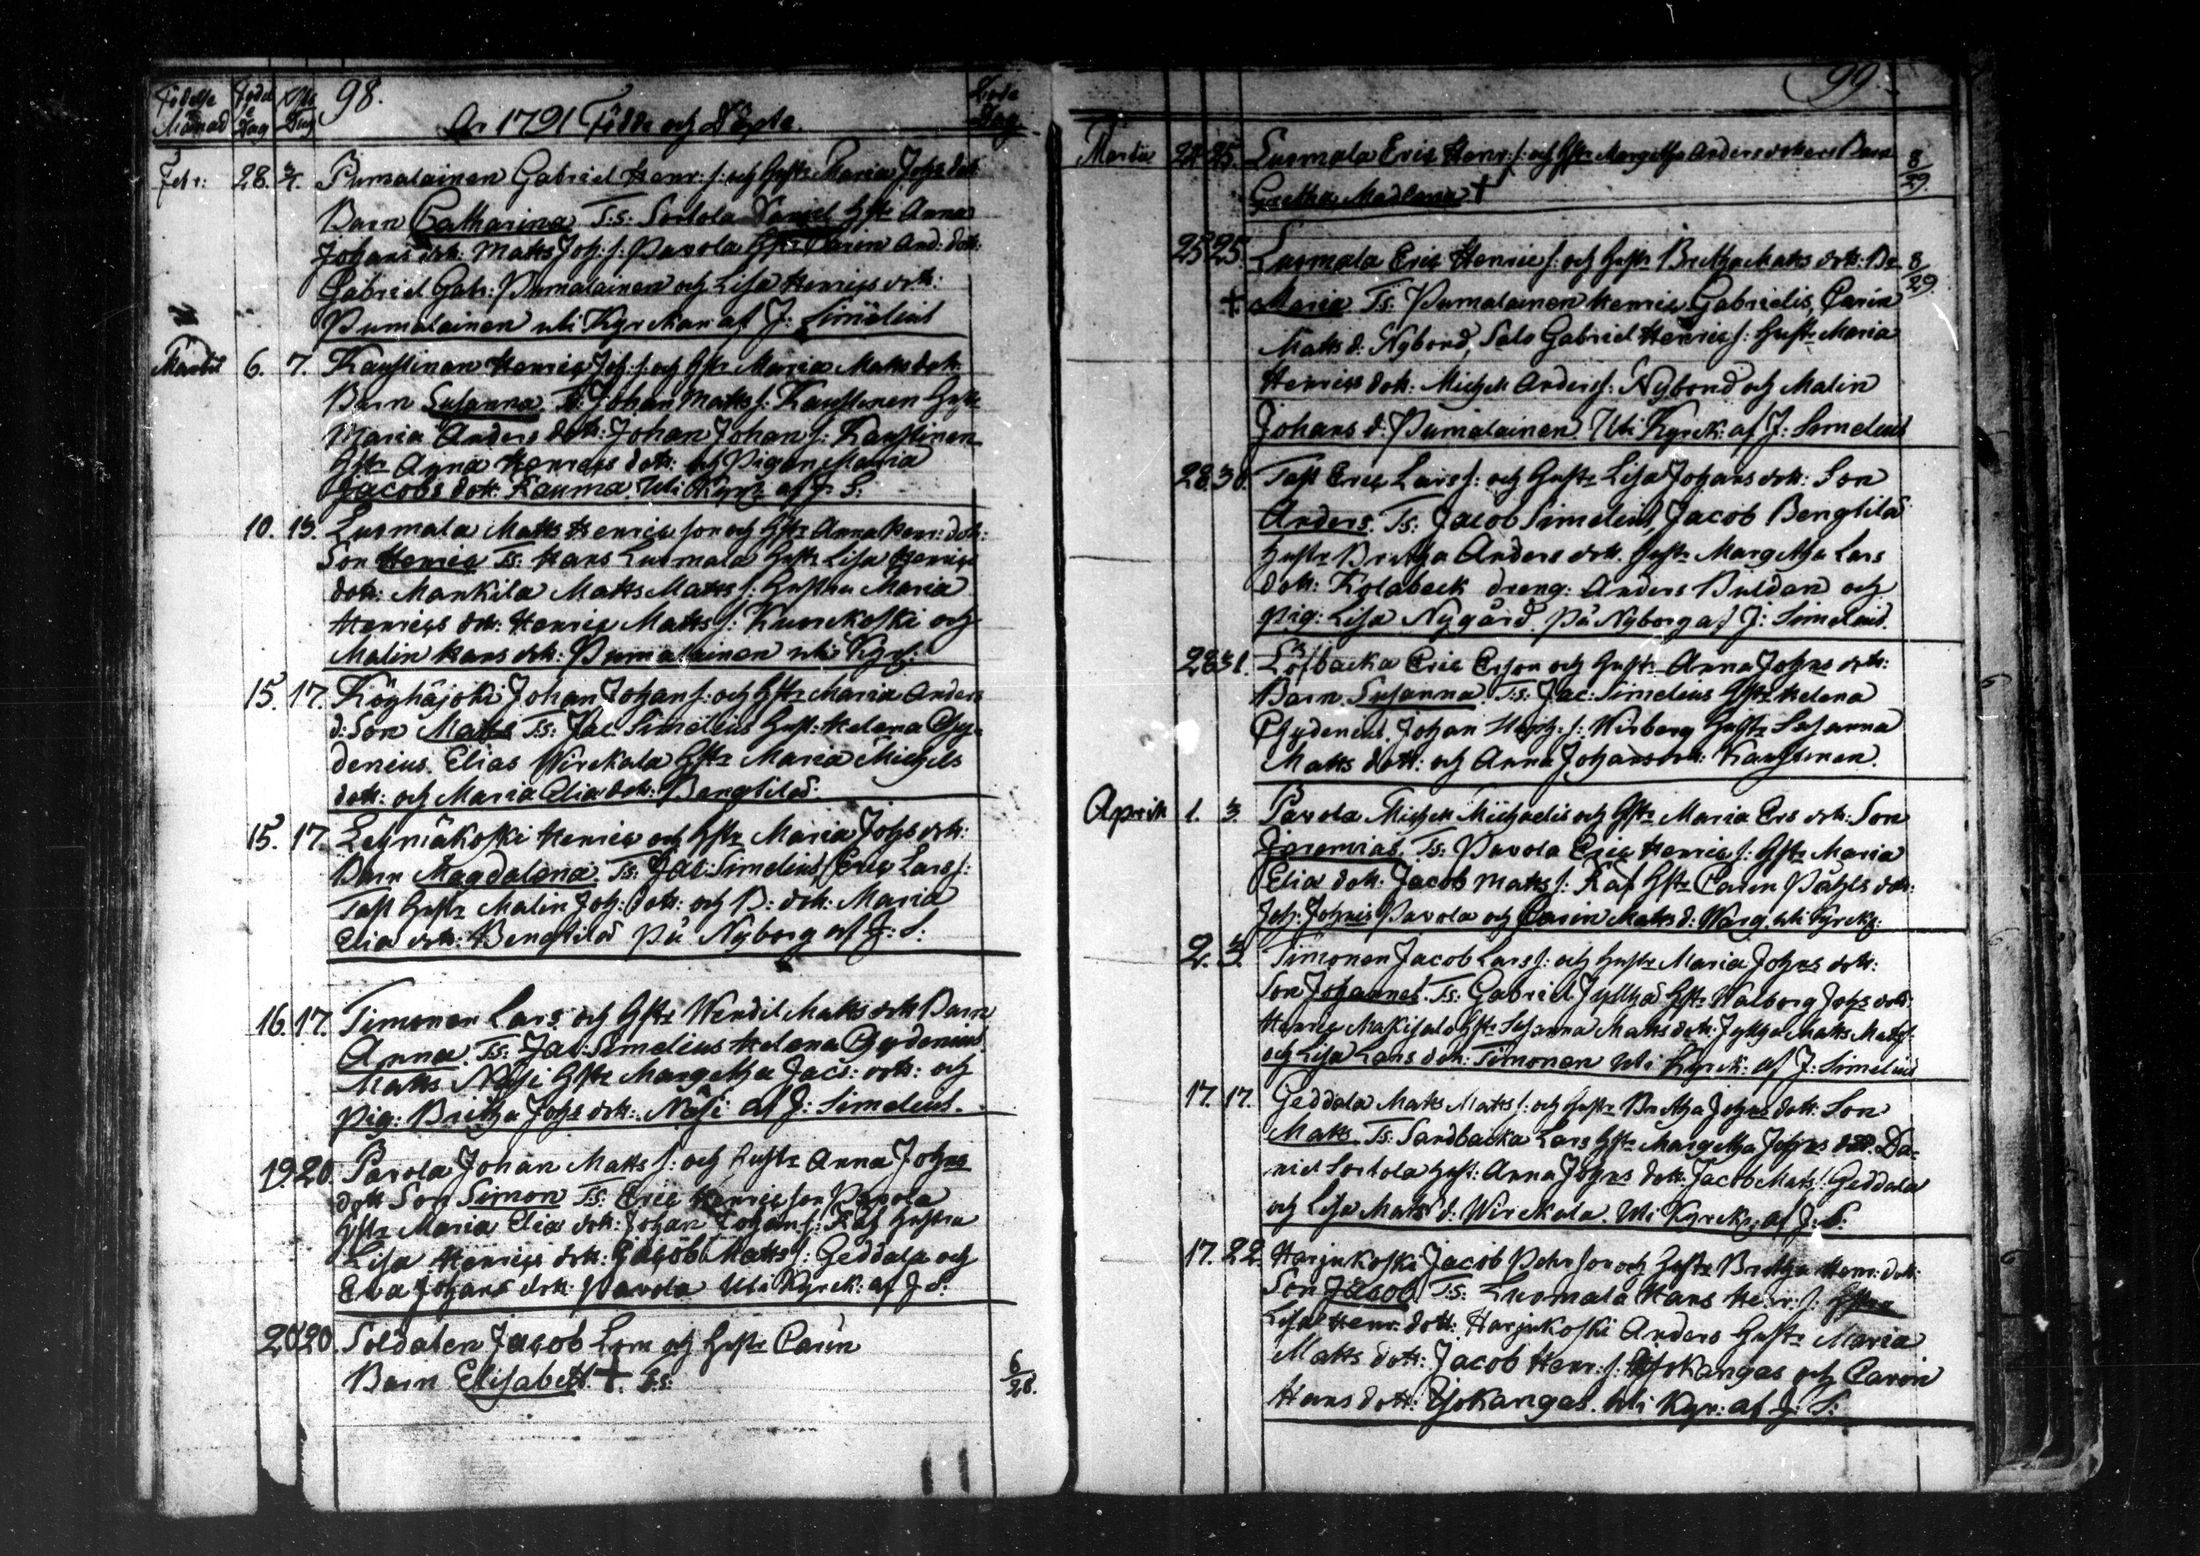 Födelse Månad
Födel e Dag
Dag
98.
Ao 1791 Födde och Döpte.
Döde Dag
Febr: 28. Pumalainen Gabriel Henr: s: och Hustr Maria Johs dot:
Barn Catharina T:s: Sortola Daniel Hstr Anna
Johans dott: Matts Joh: s: Pavola Hstr Carin And: dott:
Gabriel Gabr: Pumalainen och Lisa Henrics dott:
Pumalainen uti Kyrckan af J: Simelius
Martii 6. 7. Kaustinen Henric Joh: s: och Hstr Maria Matts dott:
Barn Susanna. T: Johan Matts s: Kaustinen Hustr
Maria Anders dott: Johan Johan s: Kaustinen
Hstr Anna Henrics dott: och Pigan Maria
Jacobs dott: Rauma. Uti Kyrk af J: S:
10. 13. Luomala Matts Henric son och Hstr Anna Henr: dott:
Son Henric T:s: Hans Luomala Hustr Lisa Henrics
dott: Mankila Matts Matts s: Hustru Maria
Henrics dott: Henric Matts s: Kuorikoski och
Malin Hans dott: Pumalainen uti Kyrk:
15. 17. Köyhäjoki Johan Johan s: och Hstr Maria Anders
d: Son Matts T:s: Jac: Simelius Hust: Helena Chy-
denius. Elias Wirckala Hstr Maria Michels
dott: och Maria Elia dott: Bengtilas
15. 17. Lehmäkoski Henric och Hstr Maria Johs dott:
Barn Magdalena. T:s: Jac: Simelius, Eric Lars s:
Tast Hustr Malin Joh: dott: och B: dott: Maria
Elia dott: Bengtilas på Nyborg af J: S:
16. 17. Timonen Lars och Hstr Wendil Matts dott Barn
Anna. T:s: Jac: Simelius Helena Chydenius
Matts Näsi Hstr Margetha Jacs: dott: och
pig: Britha Johs dott: Näsi af J: Simelius.
19. 20. Pavola Johan Matts s: och Hustr Anna Johns
dott Son Simon T:s: Eric Henric son Pavola
Hstr Maria Elia dott: Johan Johan s: Räf Hustru
Lisa Henrics dott: Jacob Matts s: Geddala och
Eva Johans dott: Pavola Uti Kyrck: af J. S:
20. 20. Soldaten Jacob Lom och Hustr Carin
Barn Elisabeth. +. T:s: 6/28.
99.
Martii 25. Luomala Eric Henr: s: och Hstr Margetha Anders dotters Barn
Gretha Madlena + 8/29
25 25. Luomala Eric Henric s: och Hustr Britha Matts dott: Br 8/29
+ Maria T:s: Pumalainen Henric Gabrielis, Carin
Matts d: Nybond, Salo Gabriel Henric s: Hustr Maria
Henrics dott: Michel Anders s: Nybond och Malin
Johans d: Pumalainen. Uti Kyrck: af J: Simelius
28. 30. Tast Eric Lars s: och Hustr Lisa Johans dott: Son
Anders. T:s: Jacob Simelius, Jacob Bengtilas
Hustr Britha Anders dott. Hustr Margetha Lars
dott: Kolabeck dreng: Anders Bulder och
pig: Lisa Nygård. På Nyborg af J: Simelius.
28. 31. Löfbacka Eric Erson och Hustr Anna Johns dott:
Barn Susanna. T:s: Jac: Simelius Hstr Helena
Chydenius. Johan s: Wirberg Hustr Susanna
Matts dott: och Anna Johans dott: Kaustinen.
Aprill 1. 3. Pavola Michel Michaelis och Hstr Maria Ers dott: Son
Jeremias. T:s: Pavola Eric Henric s: Hstr Maria
Elia dott: Jacob Matts s: Räf Hstr Carin Påhls dott:
Joh: Johns Pavola och Carin Matts d: Warg. uti Kyrck:
2. 3. Timonen Jacob Lars s: och Hustr Maria Johns dott:
Son Johannes. T:s: Gabriel Jyllhä Hstr Walborg Johs dott:
Henric Maskisalo Hstr Susanna Matts dott: Jyllhä Matts Matts s:
och Lisa Lars dott: Timonen Uti Kyrck: af J: Simelius
17. 17. Geddala Matts Matts s: och Hustr Britha Johns dott: Son
Matts. T:s: Sandbacka Lars Hstr Margetha Johns dott. Da-
niel Sortola Hust: Anna Johns dott: Jacob Matts s: Geddala
och Lisa Matts d: Wirckala. Uti Kyrck: af J: S:
17. 22. Harjukoski Jacob Pehr son och Hustr Britha Henr: dott:
Son Jacob T:s: Luomala Hans Henr: s: Hstr
Lisa Henr: dott: Harjukoski Anders Hustr Maria
Matts dott: Jacob Henr: s: Ijskangas och Carin
Hans dott: Ijskangas. Uti Kyr: af J: S: